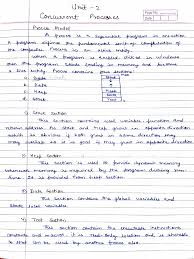 Unit - 2
Page No.
Date
Concurrent Processes
Process Model
A process is a sequential program in execution
A program defines the fundamental unit of computation
the computer. Process is an active entity.
when a program is double clicked in windows
then the program starts loading in memory and becomes
a live entity. Process contains four sections:
Stack
Heap
Data
Text
1) Stack Section
This section contains local variable, function and
return address. As stack and heap grow in opposite direction
which is obvious if both grow in same direction they may
overlap so it is good if they grow in opposite direction.
2) Heap Section
This section is used to provide dynamic memory
whenever memory is required by the program during run-
time. It is provided from heap section.
3) Data Section
This section contains the global variables and
static local variables.
4) Text Section
This section contains the executable instructions
constants and macros, it is Read-Only location and is sharable
so that can be used by another process also.